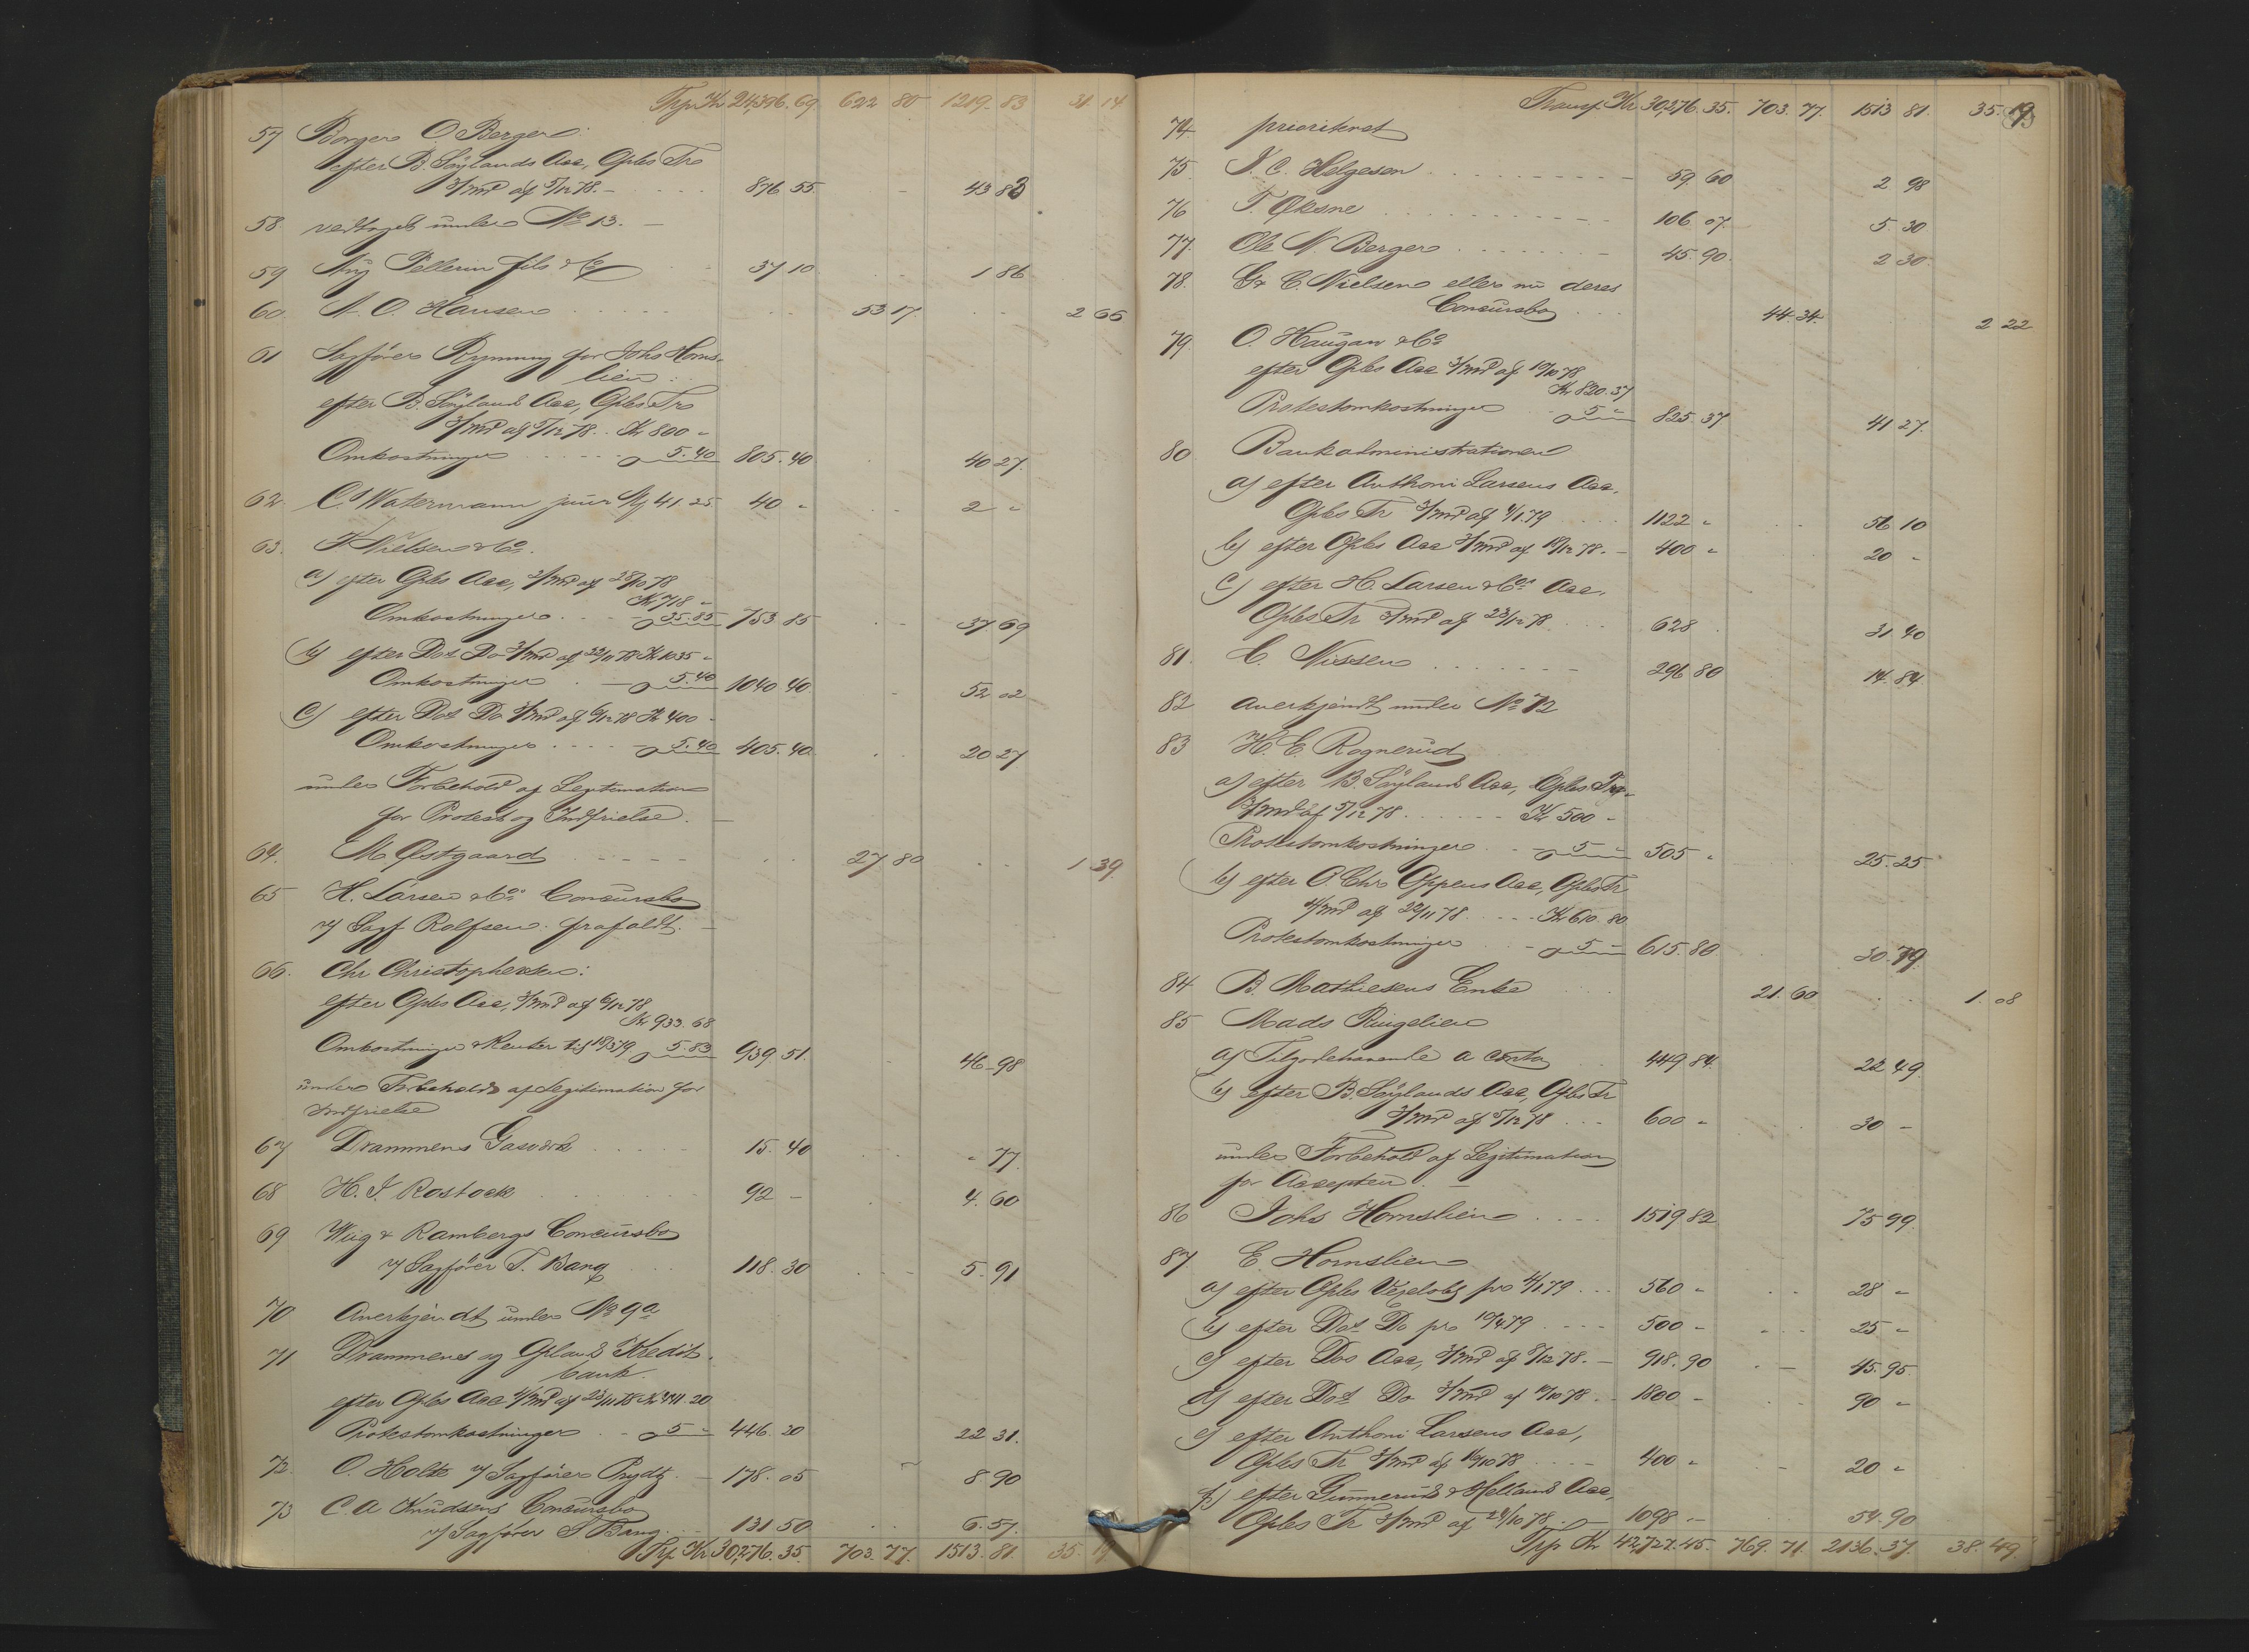 Trp Kr 24,396.69 622 80 1219.83 31 14
57 Borger O. Berger:
efter B. Söylands Acc, Opbs Tr
3/md af 5/12 78. - 876 55 - 43 83
58. vedtaget under No 13. -
59 Aug Pellerin fils & Co 37 10 1 86
60. A. O. Hansen 53 17 2 66
61 Sagfører Rynning for Johs Horns-
lien:
efter B. Söyland Acc, Opbs Tr
3/md af 5/12 78. Kr 800 -
Omkostninger 5.40 805.40 40 27.
62. C. Watermann junr Mk 41.25 40 - 2 -
63. F Nielsen & Co.
a) efter Opbs Acc, 3/md af 28/10 78
Kr 718 -
Omkostninger 35.85 753 85 37 69
b) efter Dos Do 3/md af 22/11 78 Kr 1035 -
Omkostninger 5.40 1040 40 52 02
c) efter Dos Do 3/md af 6/12 78 Kr 400 -
Omkostninger 5.40 405.40 20 27
under Forbehold af Legitimation
for Protest og Indfrielse. -
64. M. Østgaard 27 80 1 39.
65 H. Larsen & Cos Concursbo
v/ Sagf Rolfsen. frafaldt. -
66. Chr Christophersen:
efter Opbs Acc, 3/md af 6/12 78
Kr 933.68
Omkostninger & Renter til 18/3 79 5.83 939.51. 46-98
under Forbehold af Legitimation for
Indfrielse
67 Drammens Gasværk 15.40 - 77.
68 H. J. Rostock 92 - 4.60
69 Wiig & Rambergs Concursbo
v/ Sagfører T. Bang 118.30 5.91
70 Anerkjendt under No 9a
71 Drammens og Oplands Kredit-
bank.
efter Opbs Acc 4/md af 23/11 78 Kr 441.20
Protestomkostninger 5 - 446.20 22 31.
72. O. Holte v/ Sagfører Prydtz. - 178.05 8.90
73 C. A Knudsens Concursbo
v/ Sagfører T Bang. 131 50 6.57.
Trp Kr 30,276.35. 703.77. 1513.81. 35.19
Transp. Kr 30,276.35. 703.77. 1513 81. 35.19
74 prioriteret
75. J. C. Helgesen 59 60 2 98
76 T. Øksne 106.07. 5.30
77. Ole N Berger 45.90. 2 30.
78. Gr C. Nielsen eller nu deres
Concursbo 44.34. 2 22
79. O. Haugan & Co
efter Opbs Acc 3/md af 19/10 78
Kr 820.37
Protestomkostninger 5 - 825.37 41 27.
80 Bankadministrationen
a) efter Anthoni Larsens Acc,
Opbs Tr 3/md af 4/1 79 1122 - 56 10
b) efter Opbs Acc 3/md af 18/12 78. - 400 - 20 -
c) efter H. Larsen & Cos Acc,
Opbs Tr 3/md af 23/12 78 628. 31.40
81. C. Nissen 296 80 14.84.
82 anerkjendt under No 72
83 H. E. Rognerud
a) efter B. Söyland Acc, Opbs Tr
3/md af 5/12 78. Kr 500 -
Protestomkostninger 5 - 505 - 25.25
b) efter O. Chr Oppens Acc, Opbs Tr
4/md af 22/11 78 Kr 610.80
Protestomkostninger 5 - 615.80 30.79.
84 B. Mathiesens Enke 21.60 1.08
85 Mads Ringelien
a) Tilgodehavende a conto 449 84. 22 49.
b) efter B. Söylands Acc, Opbs Tr
3/md af 5/12 78 600 - 30 -
under Forbehold af Legitimation
for Accepten. -
86 Johs Hornslien 1519 82 75 99.
87 E. Hornslien
a) efter Opbs Vexelobl pro 4/1 79 560 - 28 -
b) efter Dos Do pro 10/4 79 500 - 25 -
c) efter Dos Acc, 3/md af 9/12 78. - 918.90 45.95
d) efter Dos Do 3/md af 10/10 78 1800 - 90 -
e) efter Anthoni Larsens Acc,
Opbs Tr 3/md af 16/10 78 400 - 20 -
f) efter Gunnerud & Helland Acc,
Opbs Tr 3/md af 28/10 78. 1098 - 54.90
Trp Kr 42,727.45. 769.71. 2136.37. 38.49.